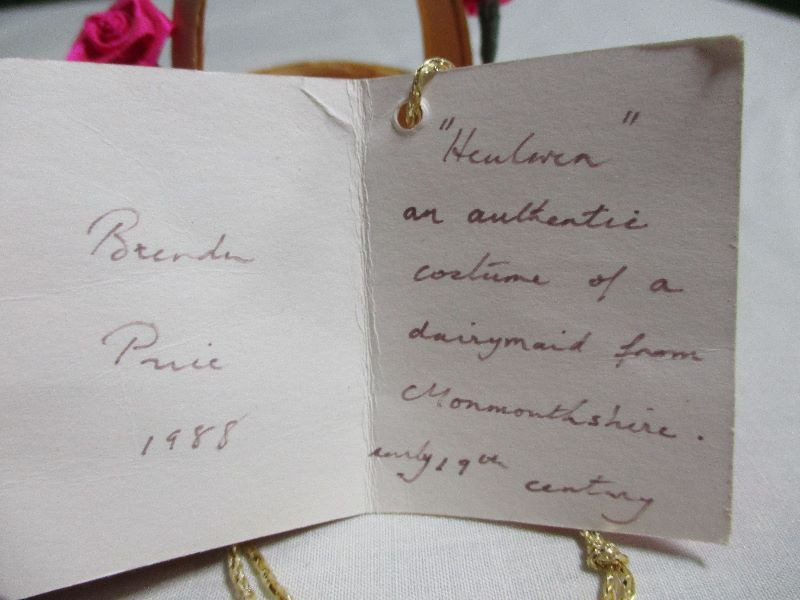 Brenda
Price
1988
"Heulwen"
an authentic
costume of a
dairymaid from
Monmouthshire.
early 19th century